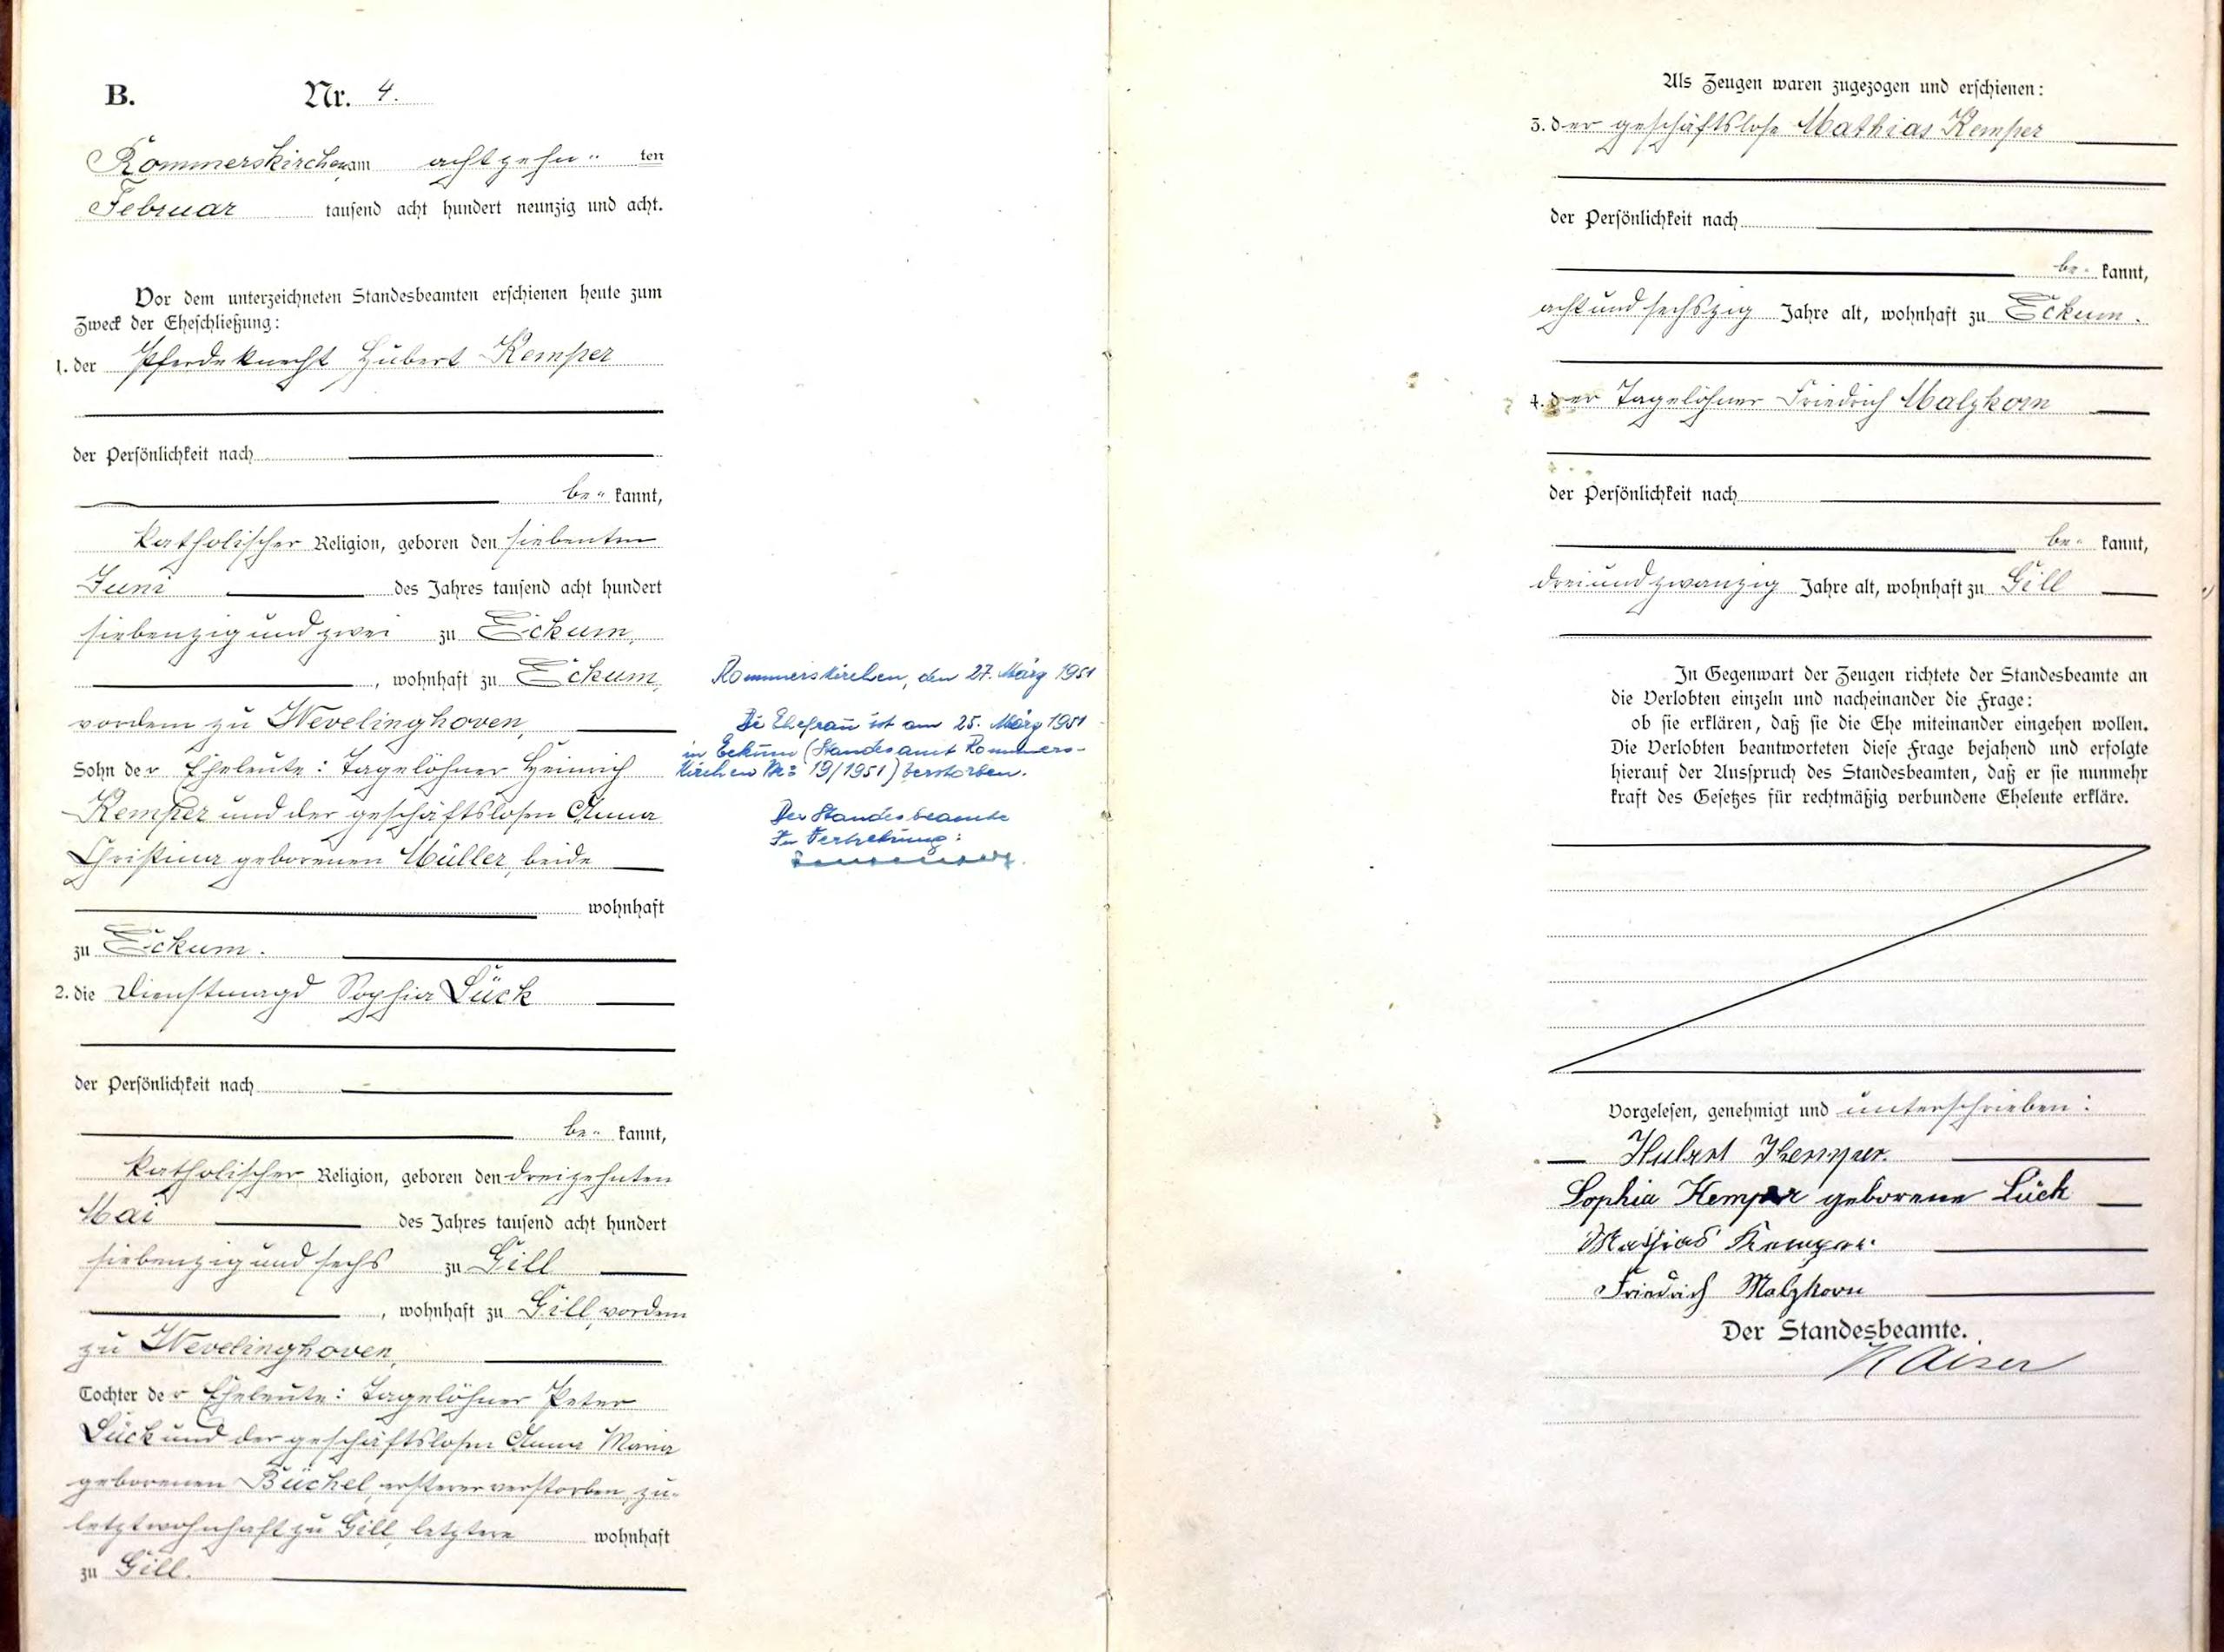 B. Nr. 4.
Rommerskirchen am achtzehn ten
Februar tausend acht hundert neunzig und acht.
Vor dem unterzeichneten Standesbeamten erschienen heute zum
Zweck der Eheschließung:
1. der Pferdeknecht Hubert Kemper
der Persönlichkeit nach
be kannt,
katholischer Religion, geboren den siebenten
Juni des Jahres tausend acht hundert
siebenzig und zwei zu Eckum,
, wohnhaft zu Eckum,
vordem zu Wevelinghoven,
Sohn der Eheleute: Tagelöhner Heinrich
Kemper und der geschäftslosen Anna
Christina geborenen Müller, beide
wohnhaft
zu Eckum.
2. die Dienstmagd Sophia Lück
der Persönlichkeit nach
be kannt,
katholischer Religion, geboren den dreizehnten
Mai des Jahres tausend acht hundert
siebenzig und sechs zu Gill
, wohnhaft zu Gill, vordem
zu Wevelinghoven,
Tochter der Eheleute: Tagelöhner Peter
Lück und der geschäftslosen Anna Maria
geborenen Büchel, ersterer verstorben, zu-
letzt wohnhaft zu Gill, letztere wohnhaft
zu Gill.
Rommerskirchen, den 27. März 1951
Die Ehefrau ist am 25. März 1951
in Eckum (Standesamt Rommers-
kirchen Nr. 19/1951) verstorben.
Der Standesbeamte
In Vertretung:
Als Zeugen waren zugezogen und erschienen:
3. der geschäftslose Mathias Kemper
der Persönlichkeit nach
be kannt,
acht und sechszig Jahre alt, wohnhaft zu Eckum.
4. der Tagelöhner Friedrich Malzkorn
der Persönlichkeit nach
be kannt,
drei und zwanzig Jahre alt, wohnhaft zu Gill
In Gegenwart der Zeugen richtete der Standesbeamte an
die Verlobten einzeln und nacheinander die Frage:
ob sie erklären, daß sie die Ehe miteinander eingehen wollen.
Die Verlobten beantworteten diese Frage bejahend und erfolgte
hierauf der Ausspruch des Standesbeamten, daß er sie nunmehr
kraft des Gesetzes für rechtmäßig verbundene Eheleute erkläre.
Vorgelesen, genehmigt und unterschrieben:
Hubert Kemper.
Sophia Kemper geborene Lück
Mathias Kemper
Friedrich Malzkorn
Der Standesbeamte.
Kaiser